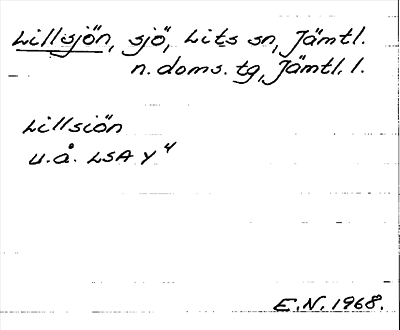 Lillsjön, sjö, Lits sn, Jämtl.
n. doms. tg, Jämtl. l.
Lillsiön
u.å. LSA Y 4
E.N. 1968.